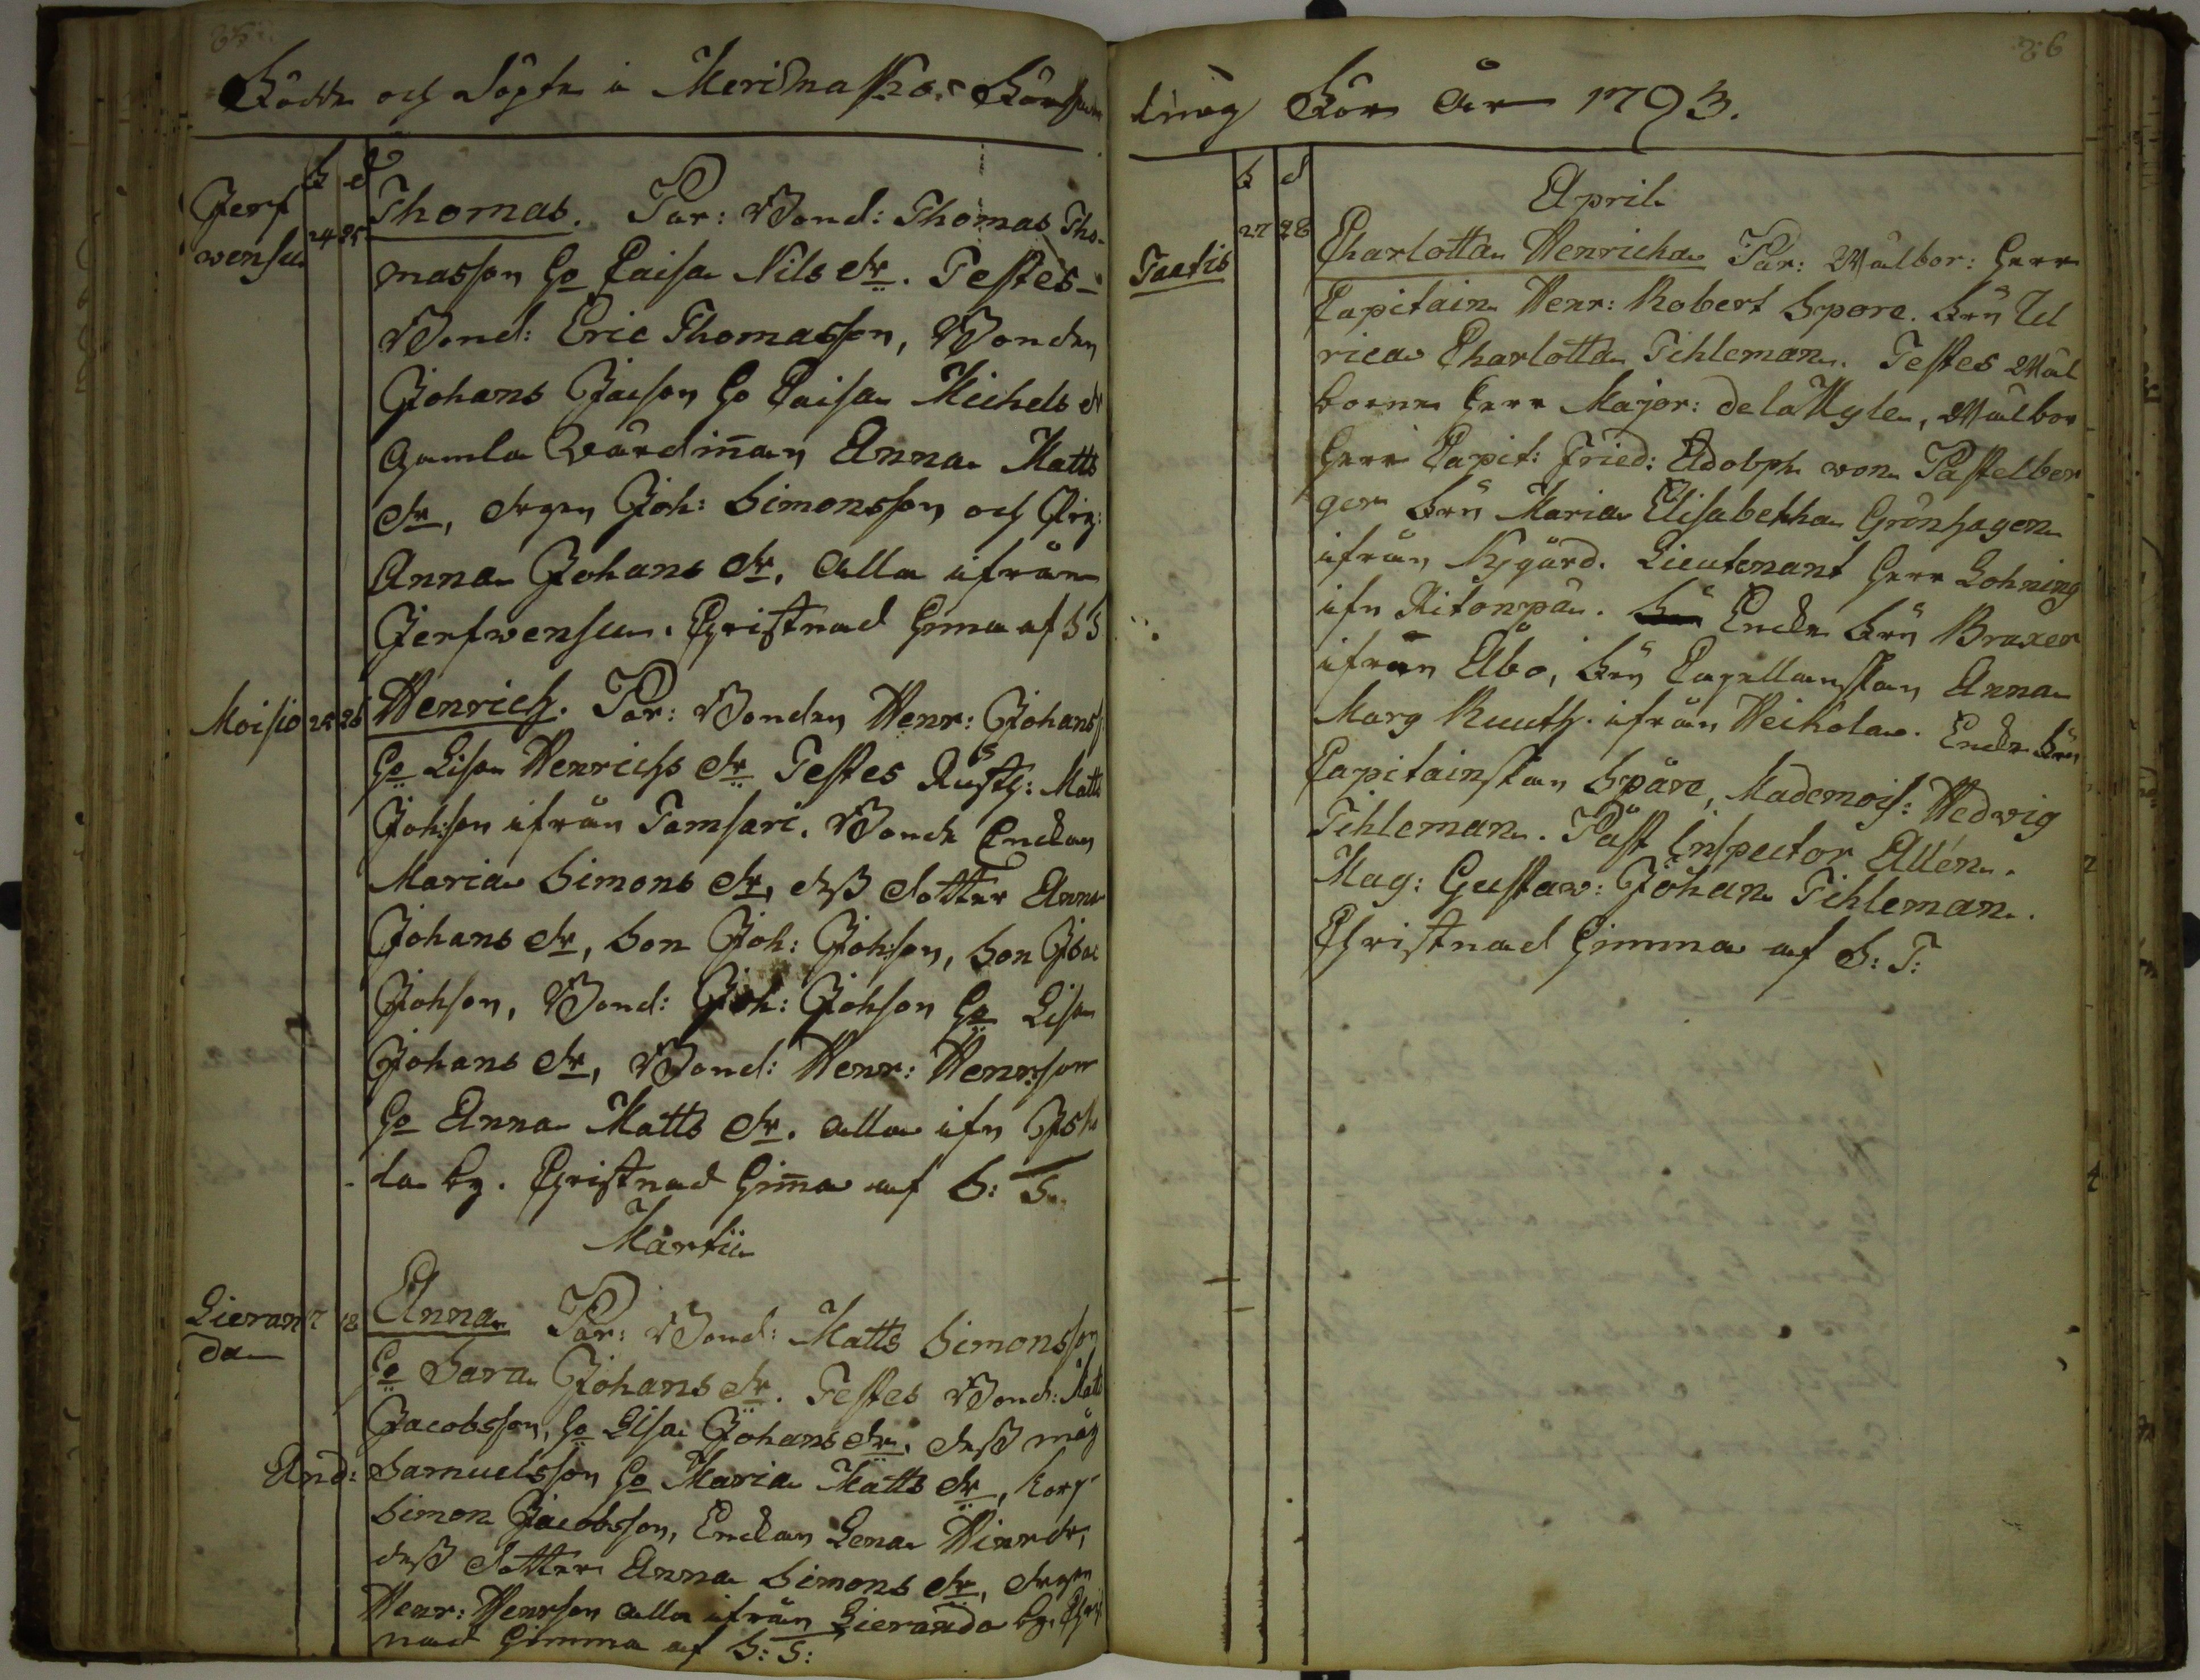 Födde och döpte i Merimasko Försam
ling För År 1793.
26
F d
Jerf
wensu 24 25
Thomas. Par: Bond: Thomas Tho-
masson ho Caisa Nils dr. Testes-
Bond: Eric Thomasson, Bonden
Johans Jacson ho Caisa Michels dr
Gamla Värdiñan Anna Matts
dr, drgen Joh: Simonsson och Pig:
Anna Johans dr, alla ifrån
Jerfwensu. Christnad hema af SS
Moisio 25 26
Henrich. Par: Bonden Henr: Johanss
ho Lisa Henrichs dr Testes Rusth: Matts
Johson ifrån Tamsari. Bonde Enckan
Maria Simons dr, dess dotter Anna
Johans dr, Son Joh: Johson, Son Isac
Johson, Bond: Joh: Johson ho Lisa
Johans dr, Bond: Henr: Henrson
ho Anna Matts dr. alla ifn
la by. Christnad him̃a af S: S.
Martii
Lieran
da 17 18
Anna Par: Bond: Matts Simonsson
ho Sara Johans dr. Testes Bond: Matts
Jacobsson, ho Lisa Johans dr. dess måg
And: Samuelsson ho Maria Matts dr, Korp
Simon Jacobsson, Enckan Lena Hinr dr,
dess dotter Anna Simons dr, drgen
Henr: Henrson alla ifrån Lieranda by. Christ
nad himma af S: S:
F d
April
Taatis 27 28
Charlotta Henricha Par: Wälbor: Herr
Capitain Henr: Robert Spore. Fru Ul
rica Charlotta Tihleman. Testes Wäl
borne Herr Major: de la Myle, Wälbor
Herr Capit: Fried: Adolph von Pastelber
ger Fru Maria Elisabetha Grönhagen
ifrån Nygård. Lieutenant Herr Lohning
ifn Ritonpä. Encke Fru Braxer
ifrån Åbo, Fru Capellanskan Anna
Marg Ruuth. ifrån Heikola. Encke Fru
Capitainskan Spåre, Mademois: Hedvig
Tihleman. Påst Inspector Allén.
Mag: Gustaw: Johan Tihleman.
Christnad himma af S: T: